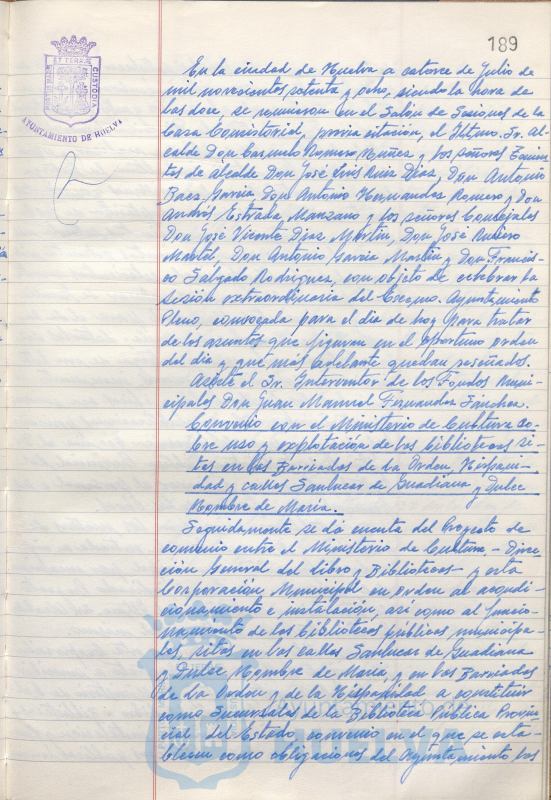 189
PORTUS MARIS
ET TERRAE
CUSTODIA
AYUNTAMIENTO DE HUELVA
En la ciudad de Huelva a catorce de Julio de
mil novecientos setenta y ocho, siendo la hora de
las doce, se reunieron en el Salón de Sesiones de la
Casa Consistorial, previa citación, el Iltmo. Sr. Al-
calde Don Carmelo Romero Núñez y los señores Tenien-
tes de Alcalde Don José Luis Ruiz Díaz, Don Antonio
Baez Garcia Don Antonio Hernández Romero y Don
Andrés Estrada Manzano y los señores Concejales
Don José Vicente Diaz Martín, Don José Rubero
Martel, Don Antonio Garcia Martin y Don Francis-
co Salgado Rodriguez, con objeto de celebrar la
sesión extraordinaria del Excmo. Ayuntamiento
Pleno, convocada para el día de hoy para tratar
de los asuntos que figuran en el oportuno orden
del día y que más adelante quedan reseñados.
Asiste el Sr. Interventor de los Fondos Muni-
cipales Don Juan Manuel Fernandez Sánchez.
Convenio con el Ministerio de Cultura so-
bre uso y explotación de las bibliotecas si-
tas en las Barriadas de La Orden, Hispani-
dad y calles Sanlucar de Guadiana y Dulce
Nombre de Maria.
Seguidamente se dá cuenta del Proyecto de
convenio entre el Ministerio de Cultura - Direc-
ción General del Libro y Bibliotecas - y esta
Corporación Municipal en orden al acondi-
cionamiento e instalación, así como al funcio-
namiento de las bibliotecas públicas municipa-
les, sitas en las calles Sanlucar de Guadiana
y Dulce Nombre de Maria, y en las Barriadas
de La Orden y de la Hispanidad a constituir
como Sucursales de la Biblioteca Pública Provin-
cial del Estado, convenio en el que se esta-
blecen como obligaciones del Ayuntamiento las
HUELVA